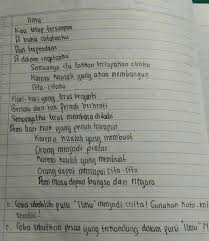 Ilmu
Kau tetap tersimpan
Di buku catatanku
Dan terpendam
Di dalam ingatanku
Semuanya itu takkan terlupakan olehku
Karena kaulah yang akan membangun
Cita-citaku
Hari-hari yang terus berganti
Berlalu dan tak pernah berhenti
Semangatku terus membara didada
Demi hari esok yang penuh harapan
Karena kaulah yang membuat
Orang menjadi pintar
Karena kaulah yang membuat
Orang dapat mencapai cita-cita
Demi masa depan bangsa dan negara
b. Coba ubahlah puisi "Ilmu" menjadi cerita! Gunakan kata-kata
sendiri!
c. Coba sebutkan pesan yang terkandung dalam puisi "Ilmu"?!